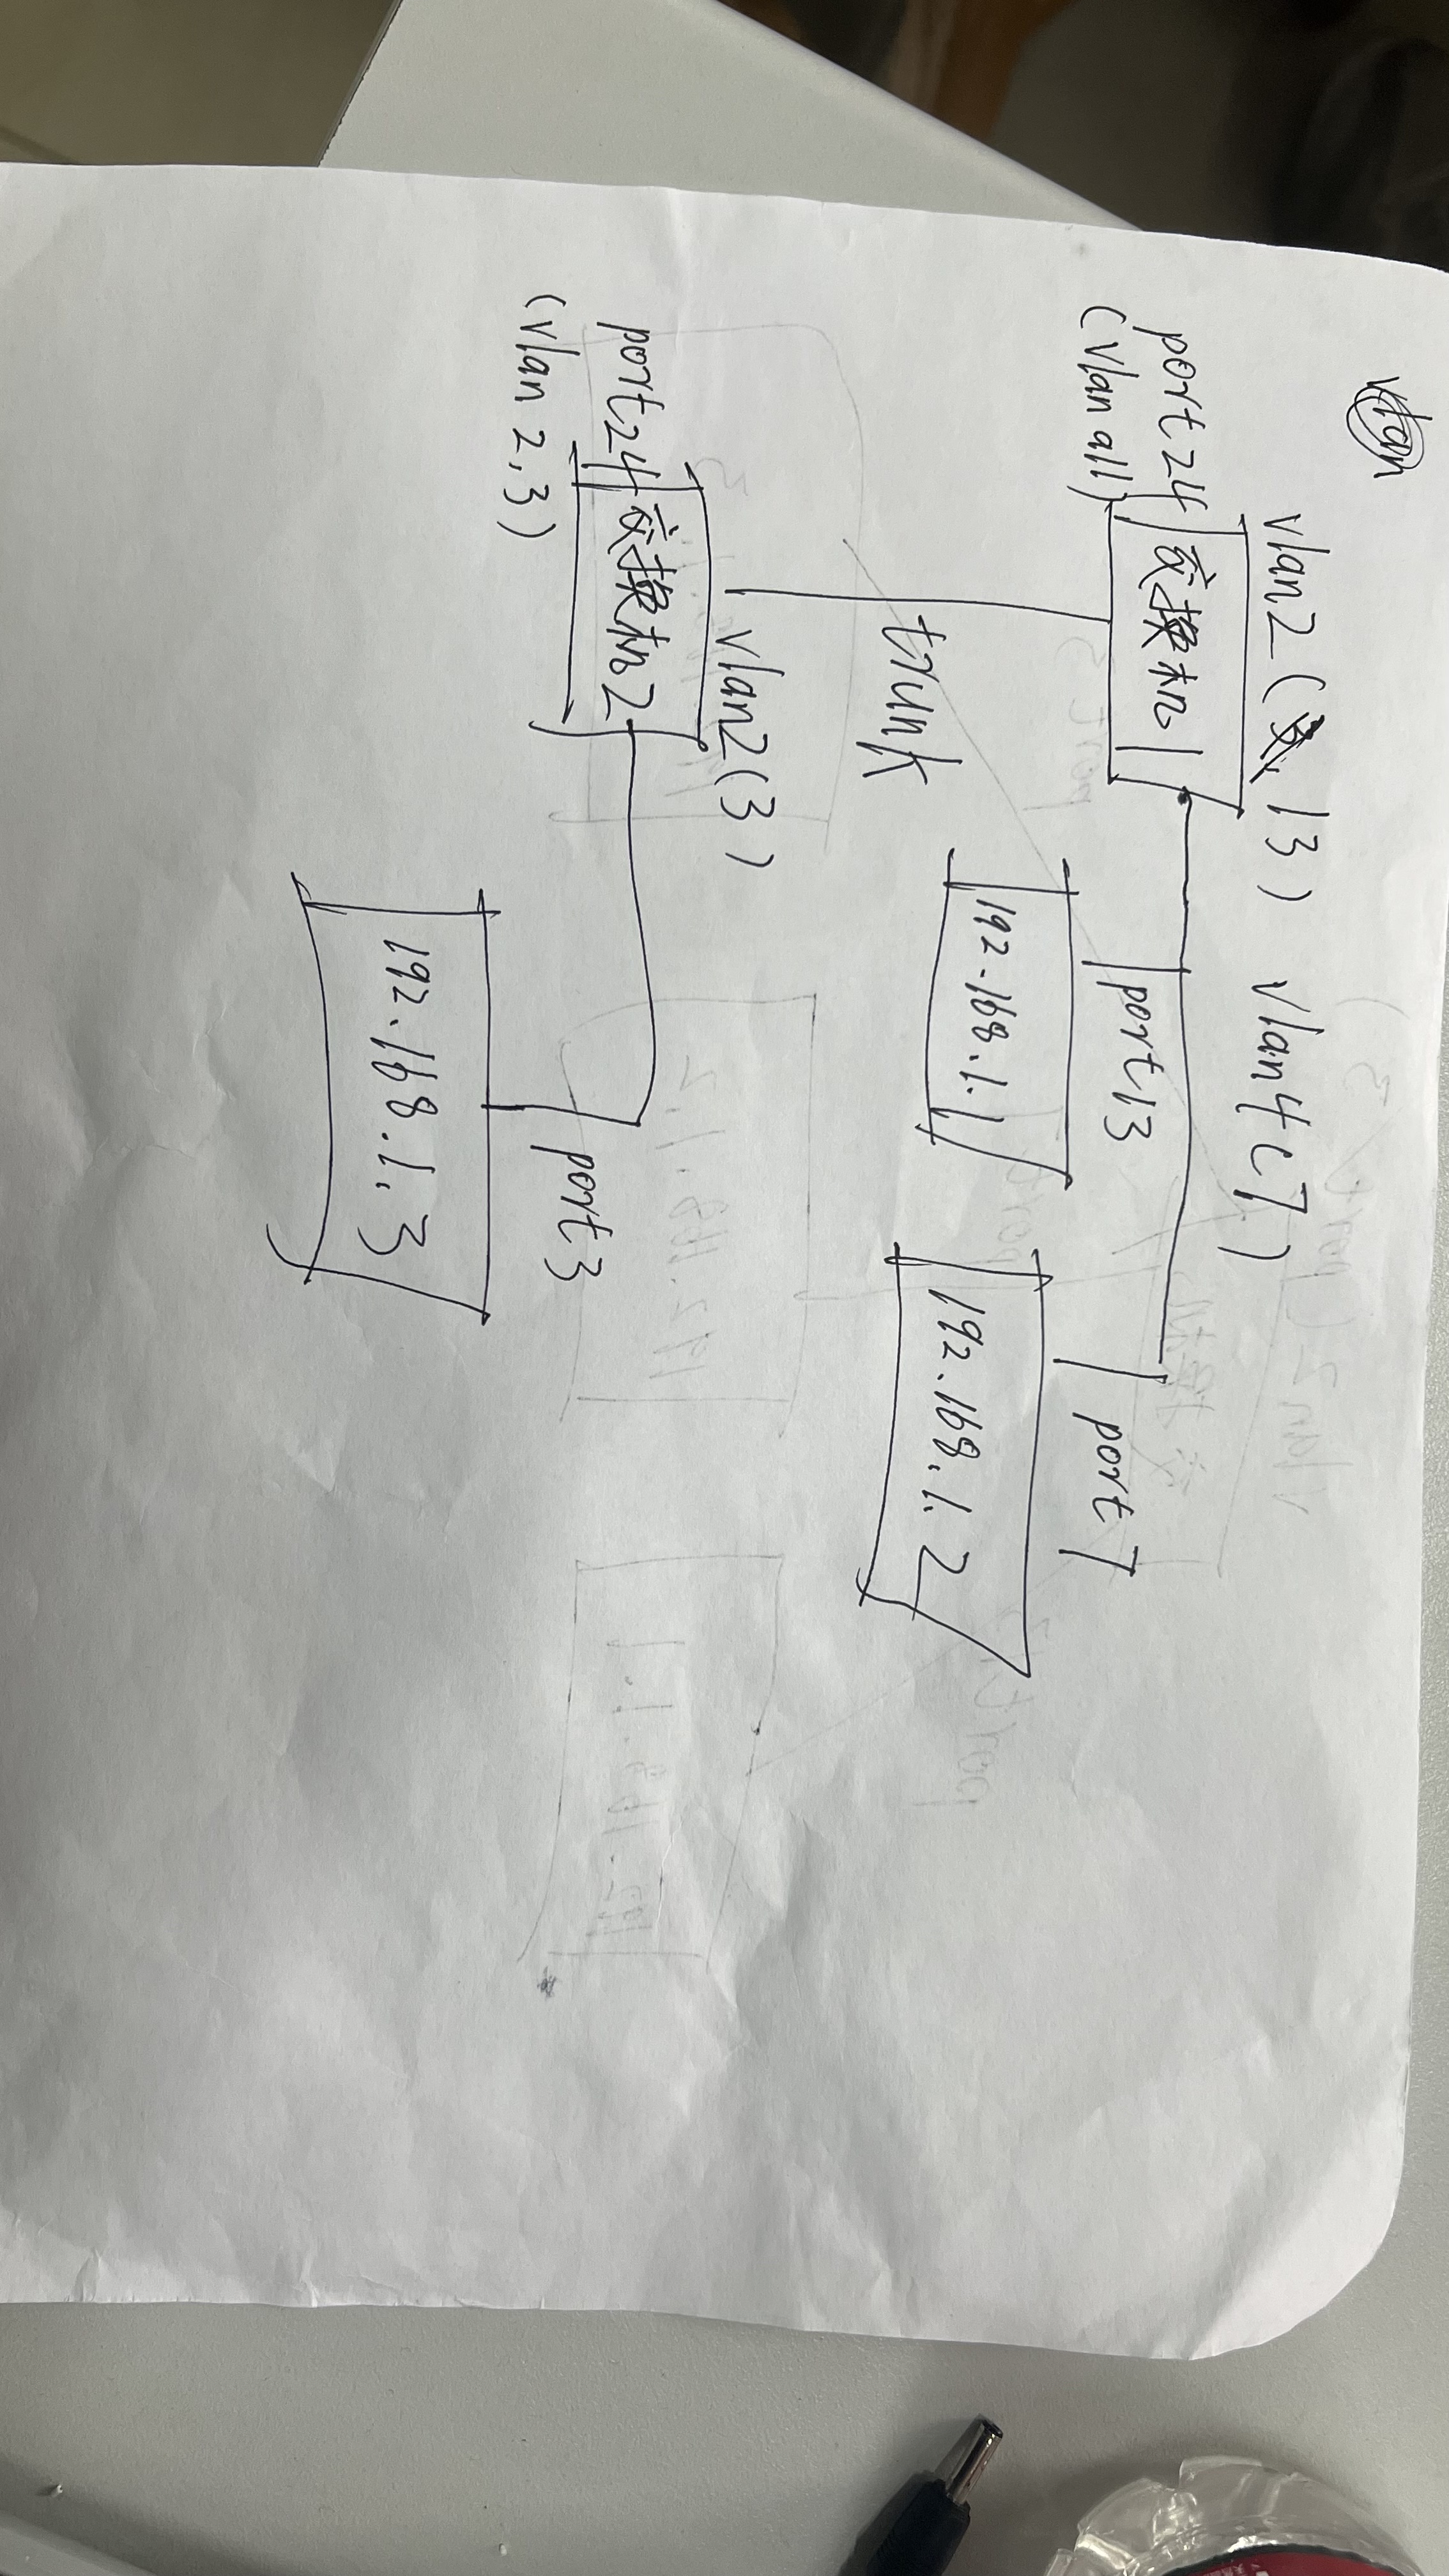 vlan
vlan2 ( 13 ) vlan4 (7)
port24 交换机1
(vlan all)
port13
port 7
192.168.1.1
192.168.1.2
trunk
vlan2(3)
port24 交换机2
(vlan 2,3)
port3
192.168.1.3